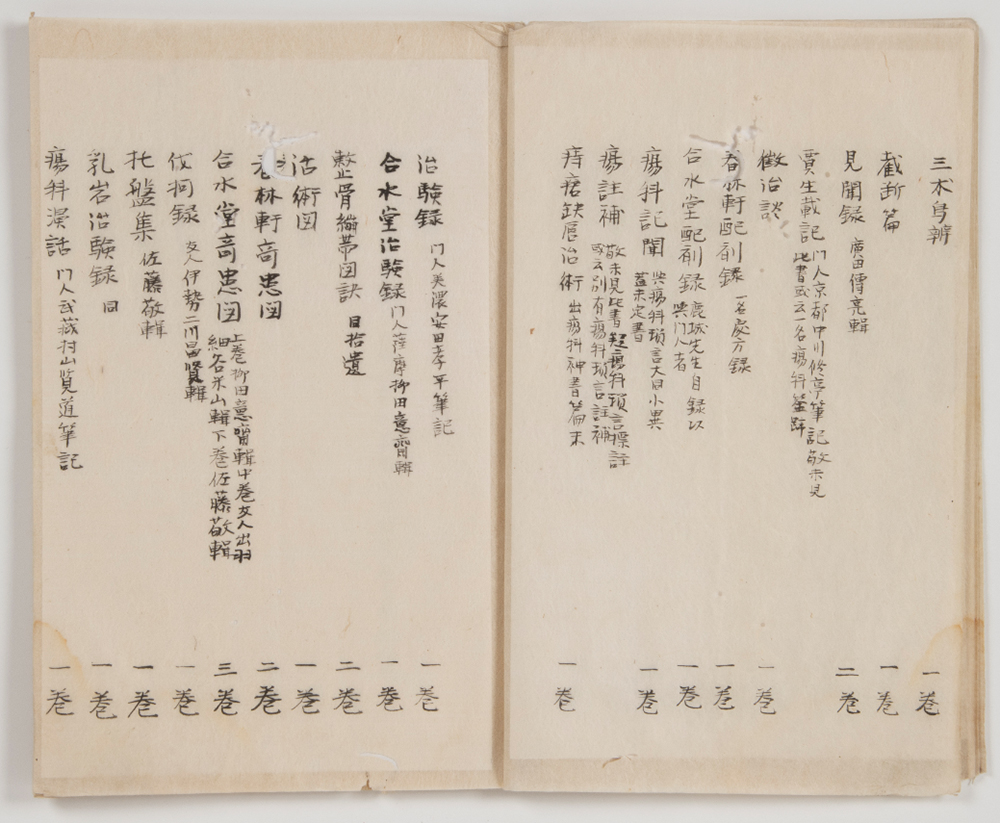 三木烏辨 一巻
截断篇 一巻
見聞録 廣田傳亮輯 二巻
賈生載記 门人京都中川修亭筆記敬未見
此書或云一名瘍科
徴治談 一巻
春林軒配剤録 一名處方録 一巻
合水堂配剤録 鹿城先生自録以
與门人者 一巻
瘍科記聞 與瘍科瑣言大同小異
蓋未定書 一巻
瘍註補 敬未見此書疑瘍科瑣言標註
或云別有瘍科瑣言註補
痔瘻缺唇治術 出瘍科神書篇末 一巻
治驗録 门人美濃安田孝平筆記 一巻
合水堂治験録 门人薩摩柳田意齋輯 一巻
整骨繃帯図訣 目拾遺 二巻
治術図 一巻
春林軒奇患図 二巻
合水堂奇患図 上巻柳田意齋輯中巻友人出羽
細谷米山輯下巻佐藤敬輯 三巻
伐柯録 友人伊勢二川昌賢輯 一巻
托盤集 佐藤敬輯 一巻
乳岩治験録 同 一巻
瘍科漢話 门人武蔵村山賢道筆記 一巻